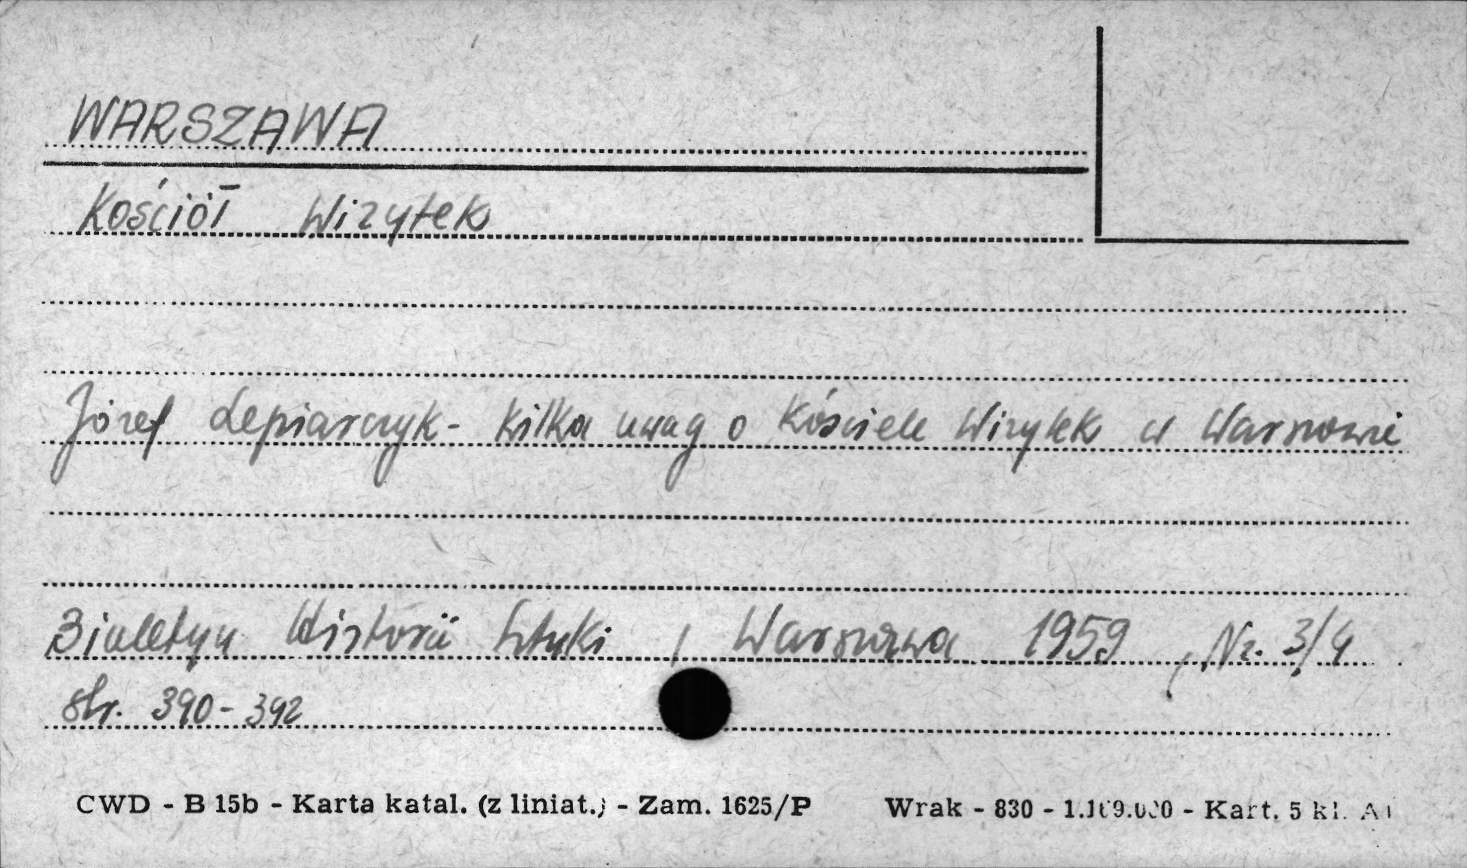 WARSZAWA
Kościół Wizytek
Józef Lepiarczyk - Kilka uwag o Kościele Wizytek w Warszawie
Biuletyn Historii Sztuki, Warszawa 1959, Nr. 3/4
str. 390-392
CWD - B 15b - Karta katal. (z liniat.) - Zam. 1625/P Wrak - 830 - 1.109.000 - Kart. 5 kl.